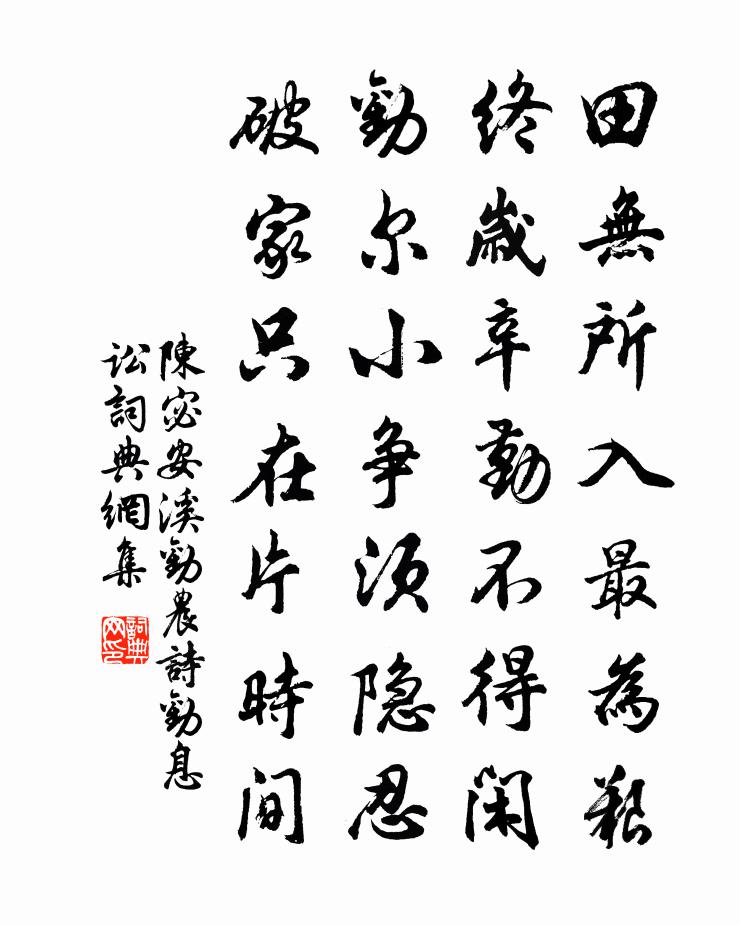 田無所入最為艱
終歲辛勤不得閑
勸尔小争須隐忍
破家只在片時間
陳宓安溪勸農詩勸息
訟詞典網集
詞典
网印